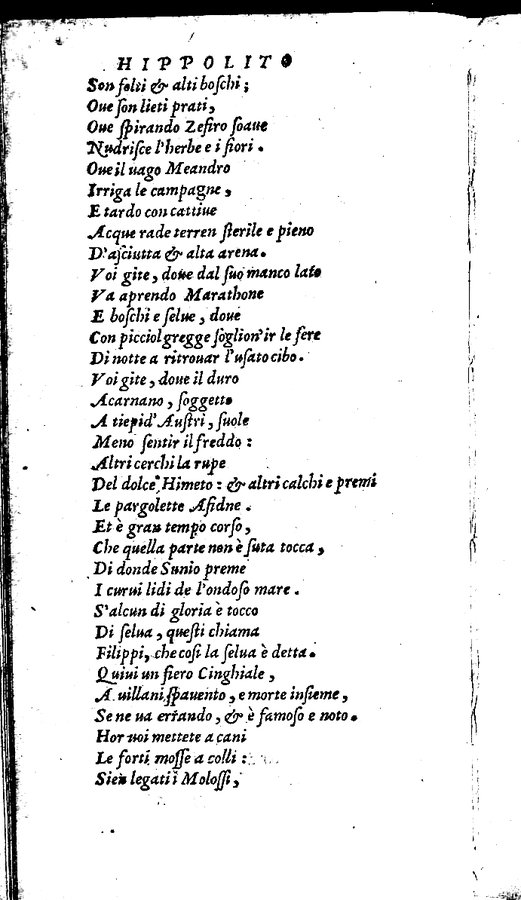 HIPPOLITO
Son folti & alti boſchi;
Oue ſon lieti prati,
Oue ſpirando Zefiro ſoaue
Nudriſce l'herbe e i fiori.
Oue il uago Meandro
Irriga le campagne,
E tardo con cattiue
Acque rade terren ſterile e pieno
D'aſciutta & alta arena.
Voi gite, doue dal ſuo manco lato
Va aprendo Marathone
E boſchi e ſelue, doue
Con picciol gregge ſoglion'ir le fere
Di notte a ritrouar l'uſato cibo.
Voi gite, doue il duro
Acarnano, ſoggetto
A tiepid' Auſtri, ſuole
Meno ſentir il freddo:
Altri cerchi la rupe
Del dolce Himeto: & altri calchi e premi
Le pargolette Afidne.
Et è gran tempo corſo,
Che quella parte non è ſuta tocca,
Di donde Sunio preme
I curui lidi de l'ondoſo mare.
S'alcun di gloria è tocco
Di ſelua, queſti chiama
Filippi, che coſi la ſelua è detta.
Quiui un fiero Cinghiale,
A uillani ſpauento, e morte inſieme,
Se ne ua errando, & è famoſo e noto.
Hor uoi mettete a cani
Le forti moſſe a colli:
Sien legati i Moloſſi,